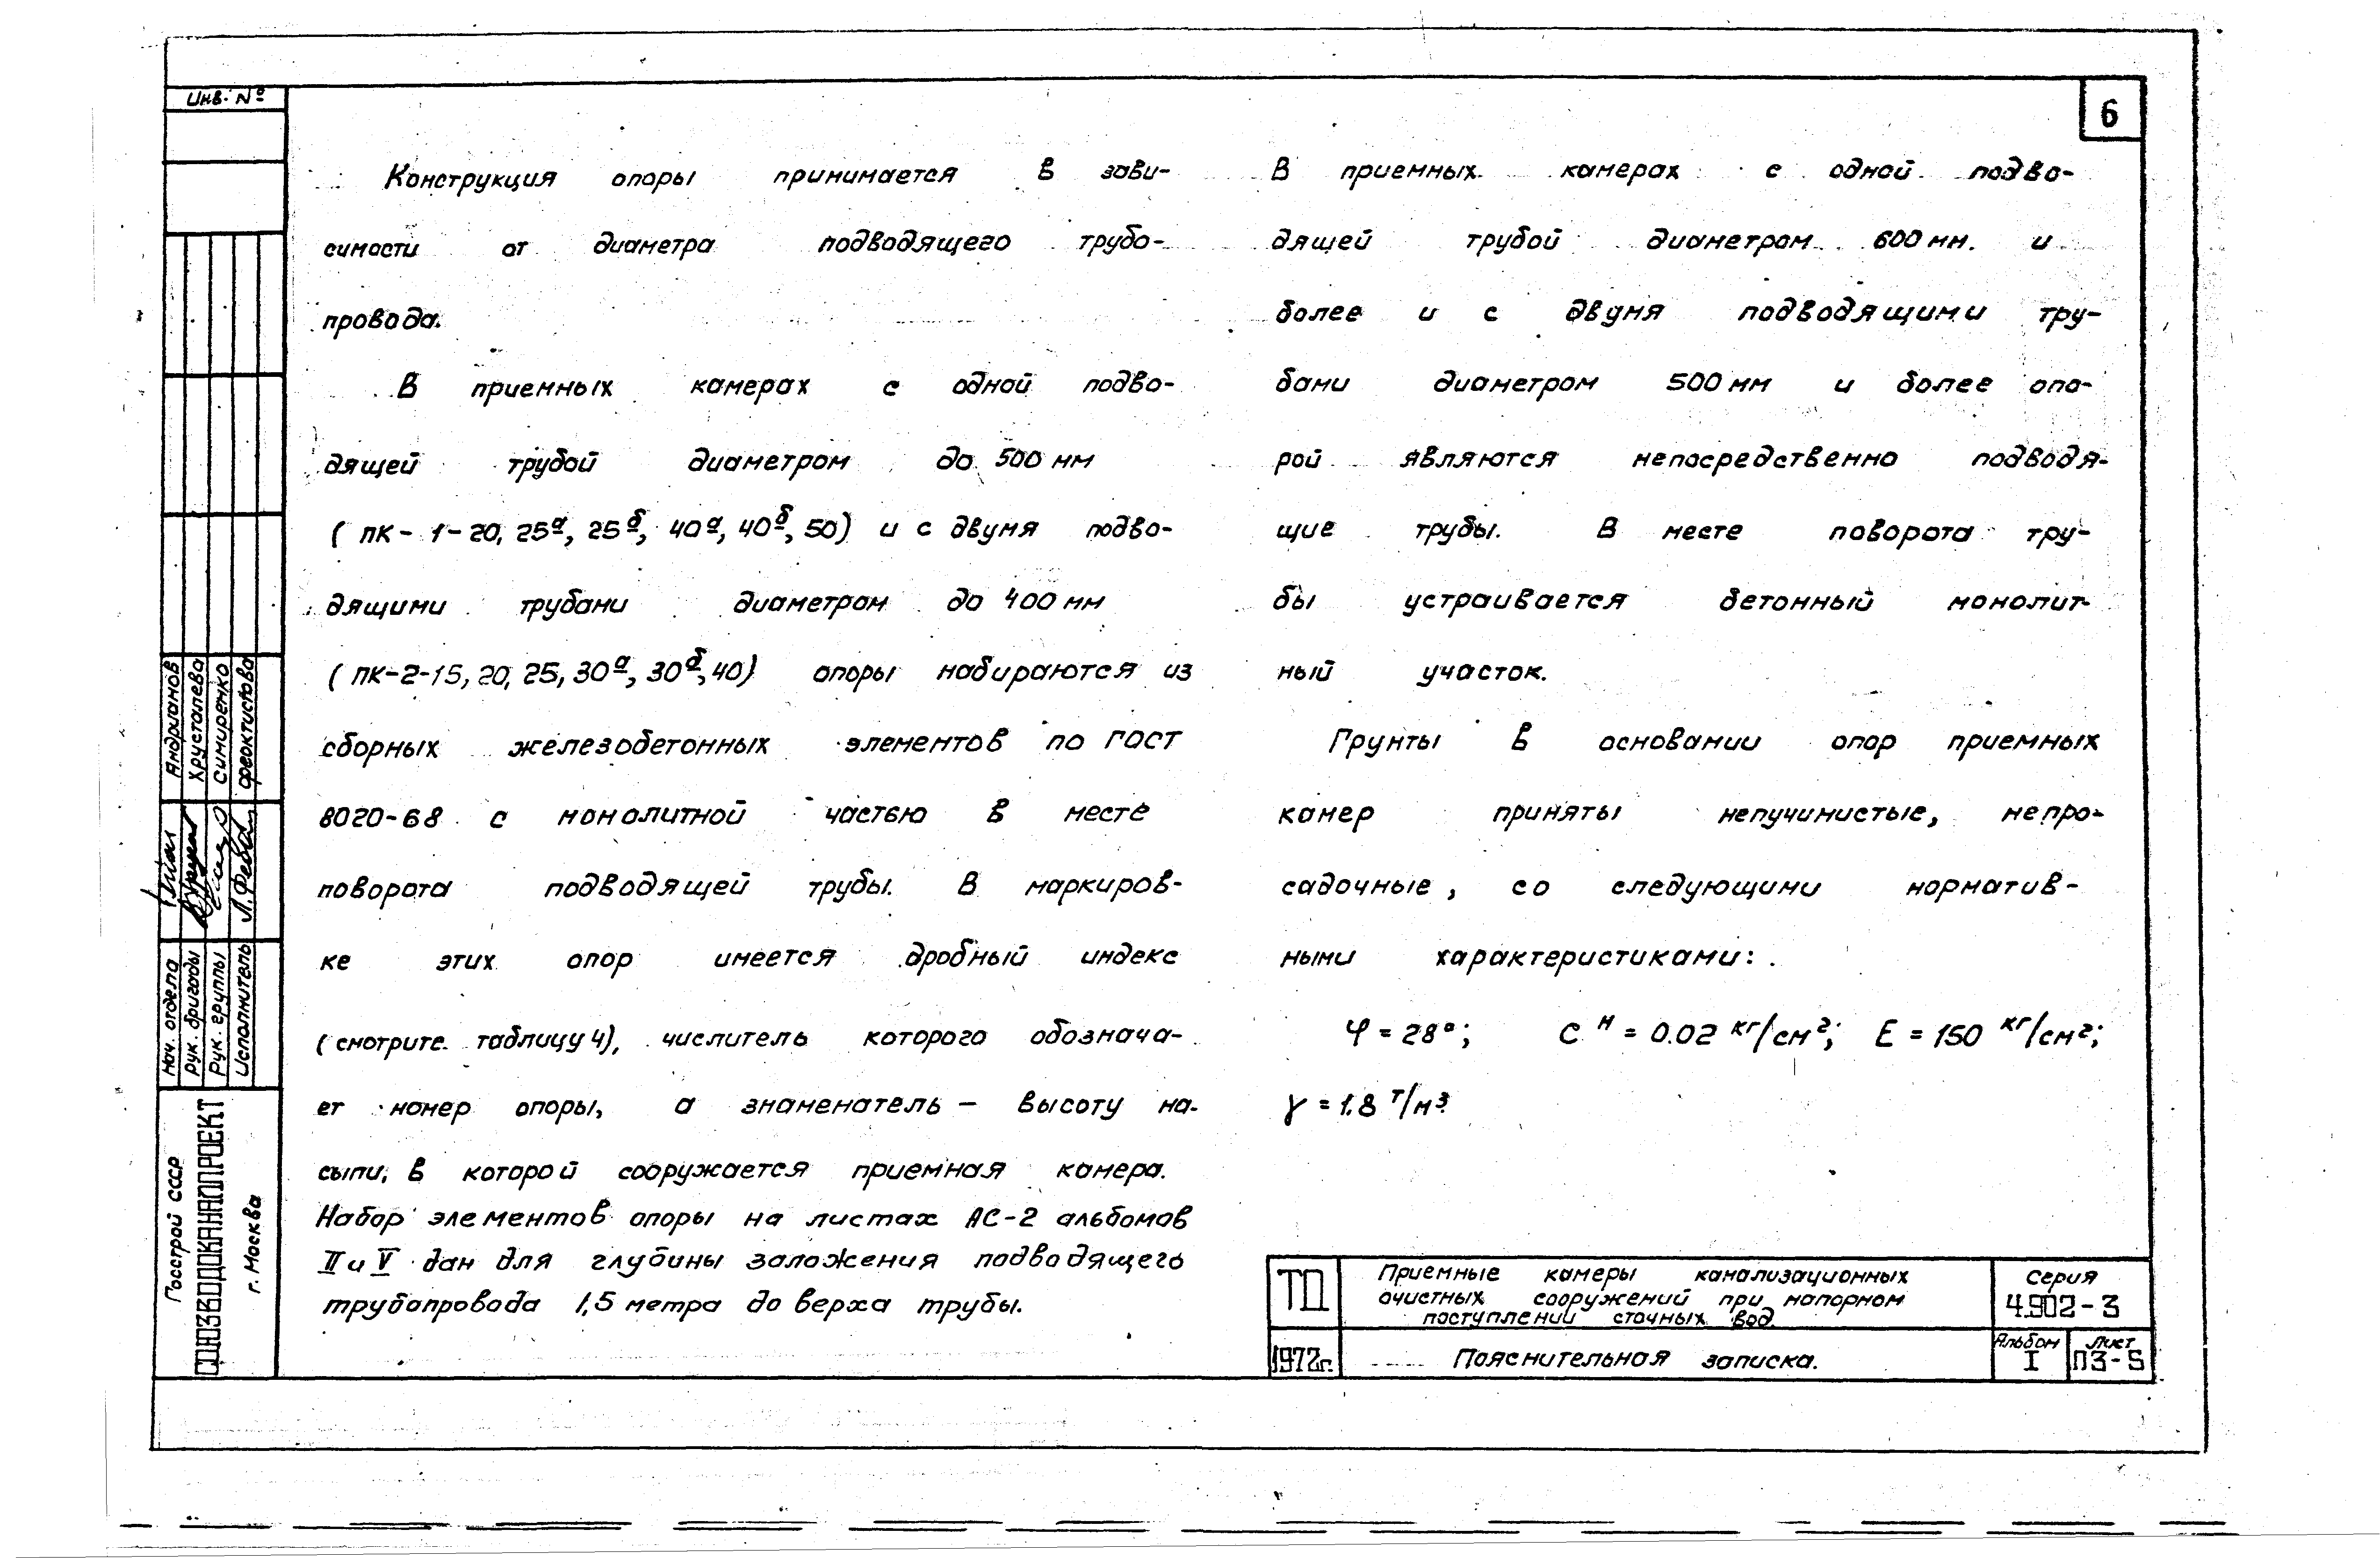 Инв. №
6
Конструкция опоры принимается в зави-
симости от диаметра подводящего трубо-
провода.
В приемных камерах с одной подво-
дящей трубой диаметром до 500 мм
( ПК - 1 - 20, 25ª, 25ᵟ, 40ª, 40ᵟ, 50) и с двумя подво-
дящими трубами диаметром до 400 мм
( ПК-2-15, 20, 25, 30ª, 30ᵟ, 40) опоры набираются из
сборных железобетонных элементов по ГОСТ
8020-68 с монолитной частью в месте
поворота подводящей трубы. В маркиров-
ке этих опор имеется дробный индекс
(смотрите таблицу 4), числитель которого обознача-
ет номер опоры, а знаменатель - высоту на-
сыпи, в которой сооружается приемная камера.
Набор элементов опоры на листах АС-2 альбомов
II и V дан для глубины заложения подводящего
трубопровода 1,5 метра до верха трубы.
В приемных камерах с одной подво-
дящей трубой диаметром 600 мм. и
более и с двумя подводящими тру-
бами диаметром 500 мм и более опо-
рой являются непосредственно подводя-
щие трубы. В месте поворота тру-
бы устраивается бетонный монолит-
ный участок.
Грунты в основании опор приемных
камер приняты непучинистые, непро-
садочные, со следующими норматив-
ными характеристиками:
φ = 28°; Cᴴ = 0.02 кг/см²; E = 150 кг/см²;
γ = 1.8 т/м³
Нач. отдела Андрианов
Рук. бригады Хрусталева
Рук. группы Симиренко
Исполнитель Л.Фео Феоктистова
Госстрой СССР
СОЮЗВОДОКАНАЛПРОЕКТ
г. Москва
ТП
Приемные камеры канализационных
очистных сооружений при напорном
поступлении сточных вод.
Серия
4.902-3
1972г.
Пояснительная записка.
Альбом
I
Лист
ПЗ-5